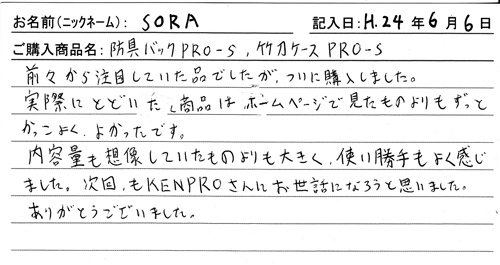 お名前(ニックネーム): SORA 記入日: H.24年6月6日
ご購入商品名: 防具バックPRO-S, 竹刀ケースPRO-S
前々から注目していた品でしたが、ついに購入しました。
実際にとどいた商品はホームページで見たものよりもずっと
かっこよく、よかったです。
内容量も想像していたものよりも大きく、使い勝手もよく感じ
ました。次回もKENPROさんにお世話になろうと思いました。
ありがとうございました。